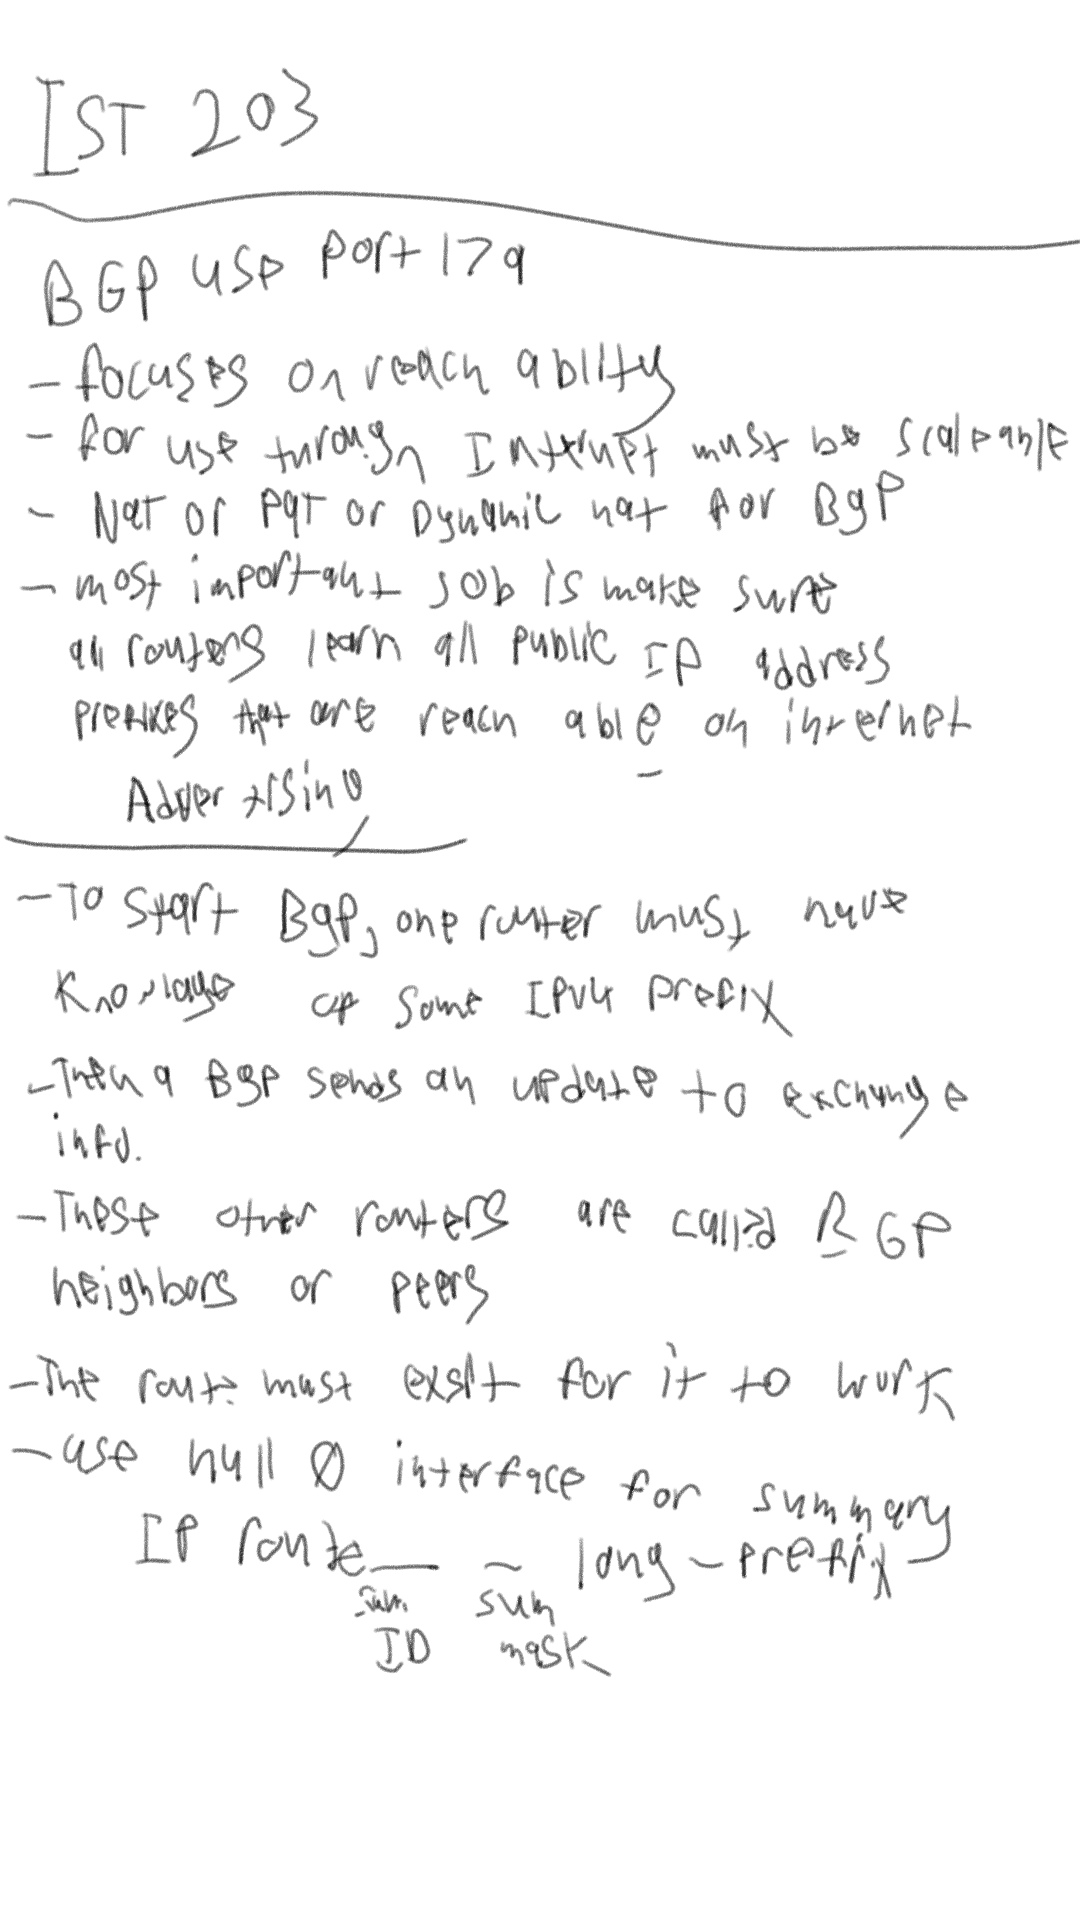 IST 203
BGP use port 179
- focuses on reach ablity
- for use through Internet must be scaleable
- Nat or Pat or Dynamic nat for BgP
- most important job is make sure
all routers learn all public IP address
prefixes that are reach able on internet
Advertising
- To start BgP, one router must have
Knowlage of some IPv4 prefix
- Then a BgP sends an update to exchange
info.
- These other routers are called BGP
neighbors or peers
- The route must exsit for it to work
- use null 0 interface for summary
IP route __ _ long-prefix
sum sum
ID mask